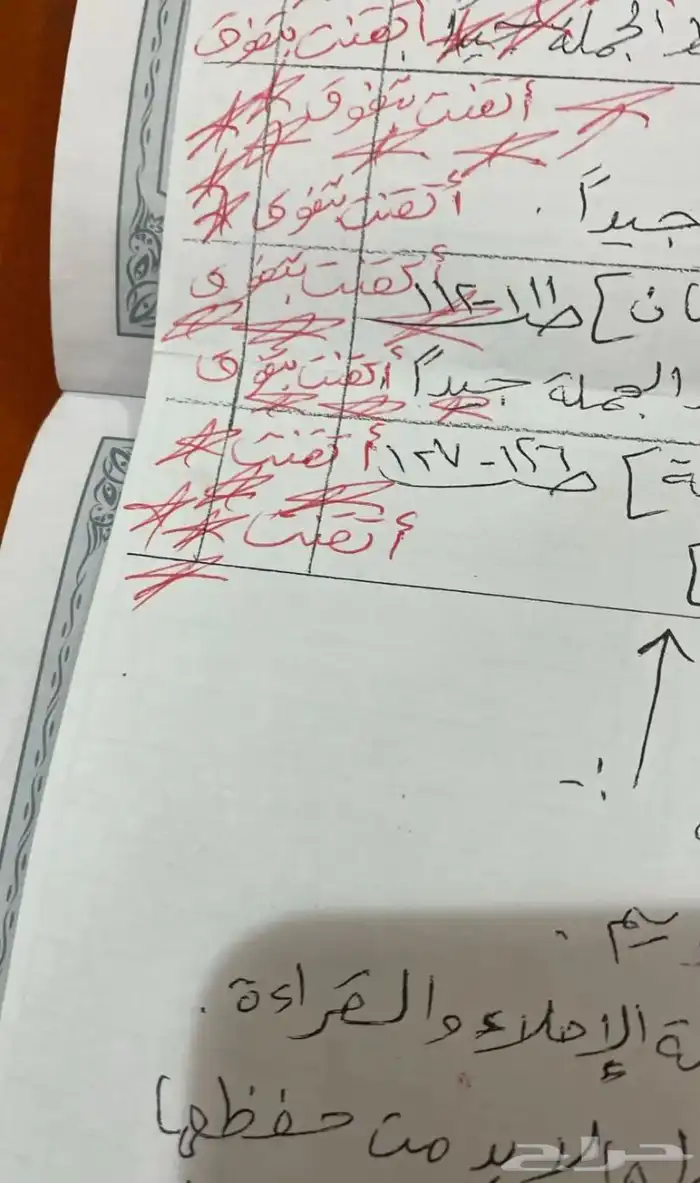 الجملة جيداً أتقنت بتفوق
أتقنت بتفوق
جيداً . أتقنت بتفوق
ان] ص١١١-١١٢ أتقنت بتفوق
الجملة جيداً أتقنت بتفوق
ة] ص١٢٦-١٢٧ أتقنت
] أتقنت
يم .
ة الإملاء والقراءة .
من حفظها
حراج